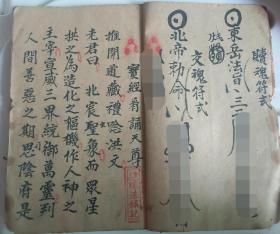 贖魂符式
東岳法旨
交魂符式
北帝勅命
寶經首誦天尊
推開道藏禮唸洪文
老君曰 北宸聖象而衆星
拱之為造化之樞機作人神之
主宰宣威三界統御萬靈到
人間善惡之期思陰府是